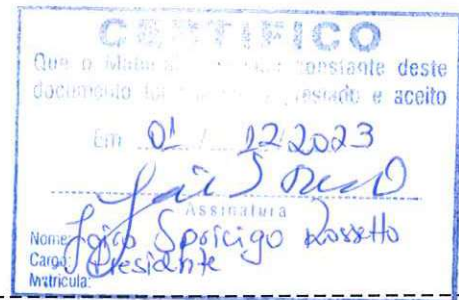 CERTIFICO
Que o Mate constante deste
documento fo estado e aceito
Em 01 / 12/2023
Assinatura
Nome: Spricigo Rossetto
Cargo: Presidente
Matrícula: